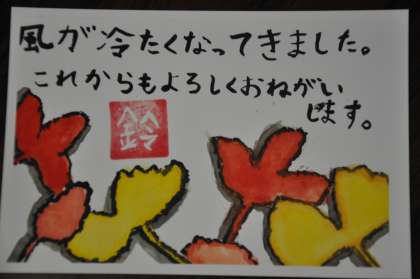 風が冷たくなってきました。
これからもよろしくおねがい
します。